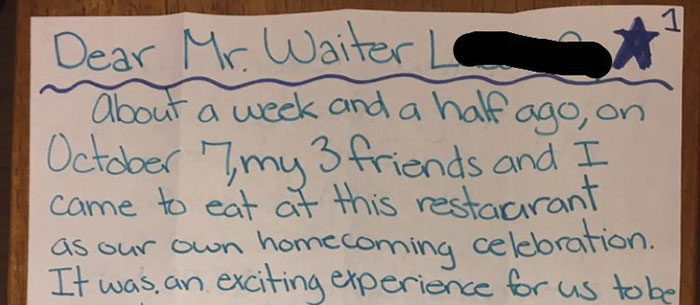 Dear Mr. Waiter L
1
About a week and a half ago, on
October 7, my 3 friends and I
came to eat at this restaurant
as our own homecoming celebration.
It was, an exciting experience for us to be